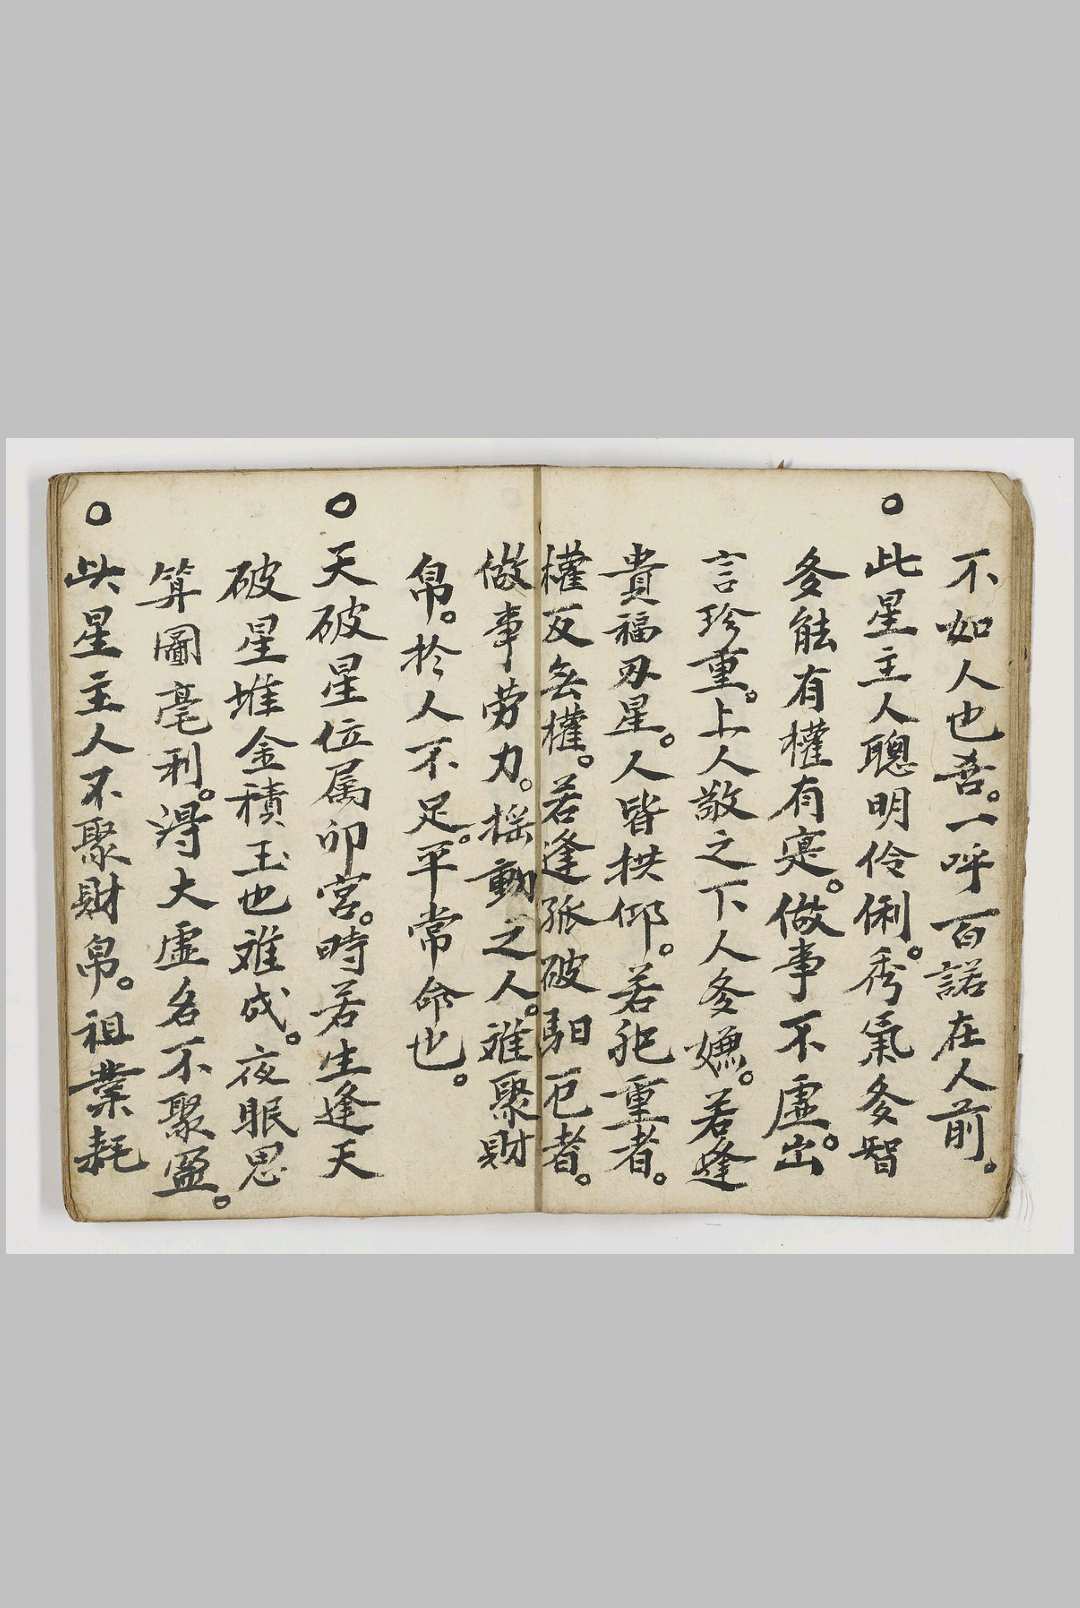 不如人也善。一呼百諾在人前。
○此星主人聰明伶俐。秀氣多智
多能有權有寔。做事不虛。出
言珍重。上人敬之下人多嫌。若逢
貴福刃星。人皆拱仰。若犯重者。
權反無權。若逢孤破馹厄者。
做事劳力。摇動之人。难聚財
帛。於人不足。平常命也。
○天破星位属卯宮。時若生逢天
破星堆金積玉也难成。夜眠思
算圖毫利。得大虛名不聚盈。
○此星主人不聚財帛。祖業耗